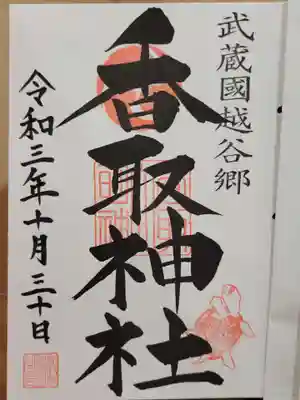 武蔵國越谷郷
香取神社
令和三年十月三十日